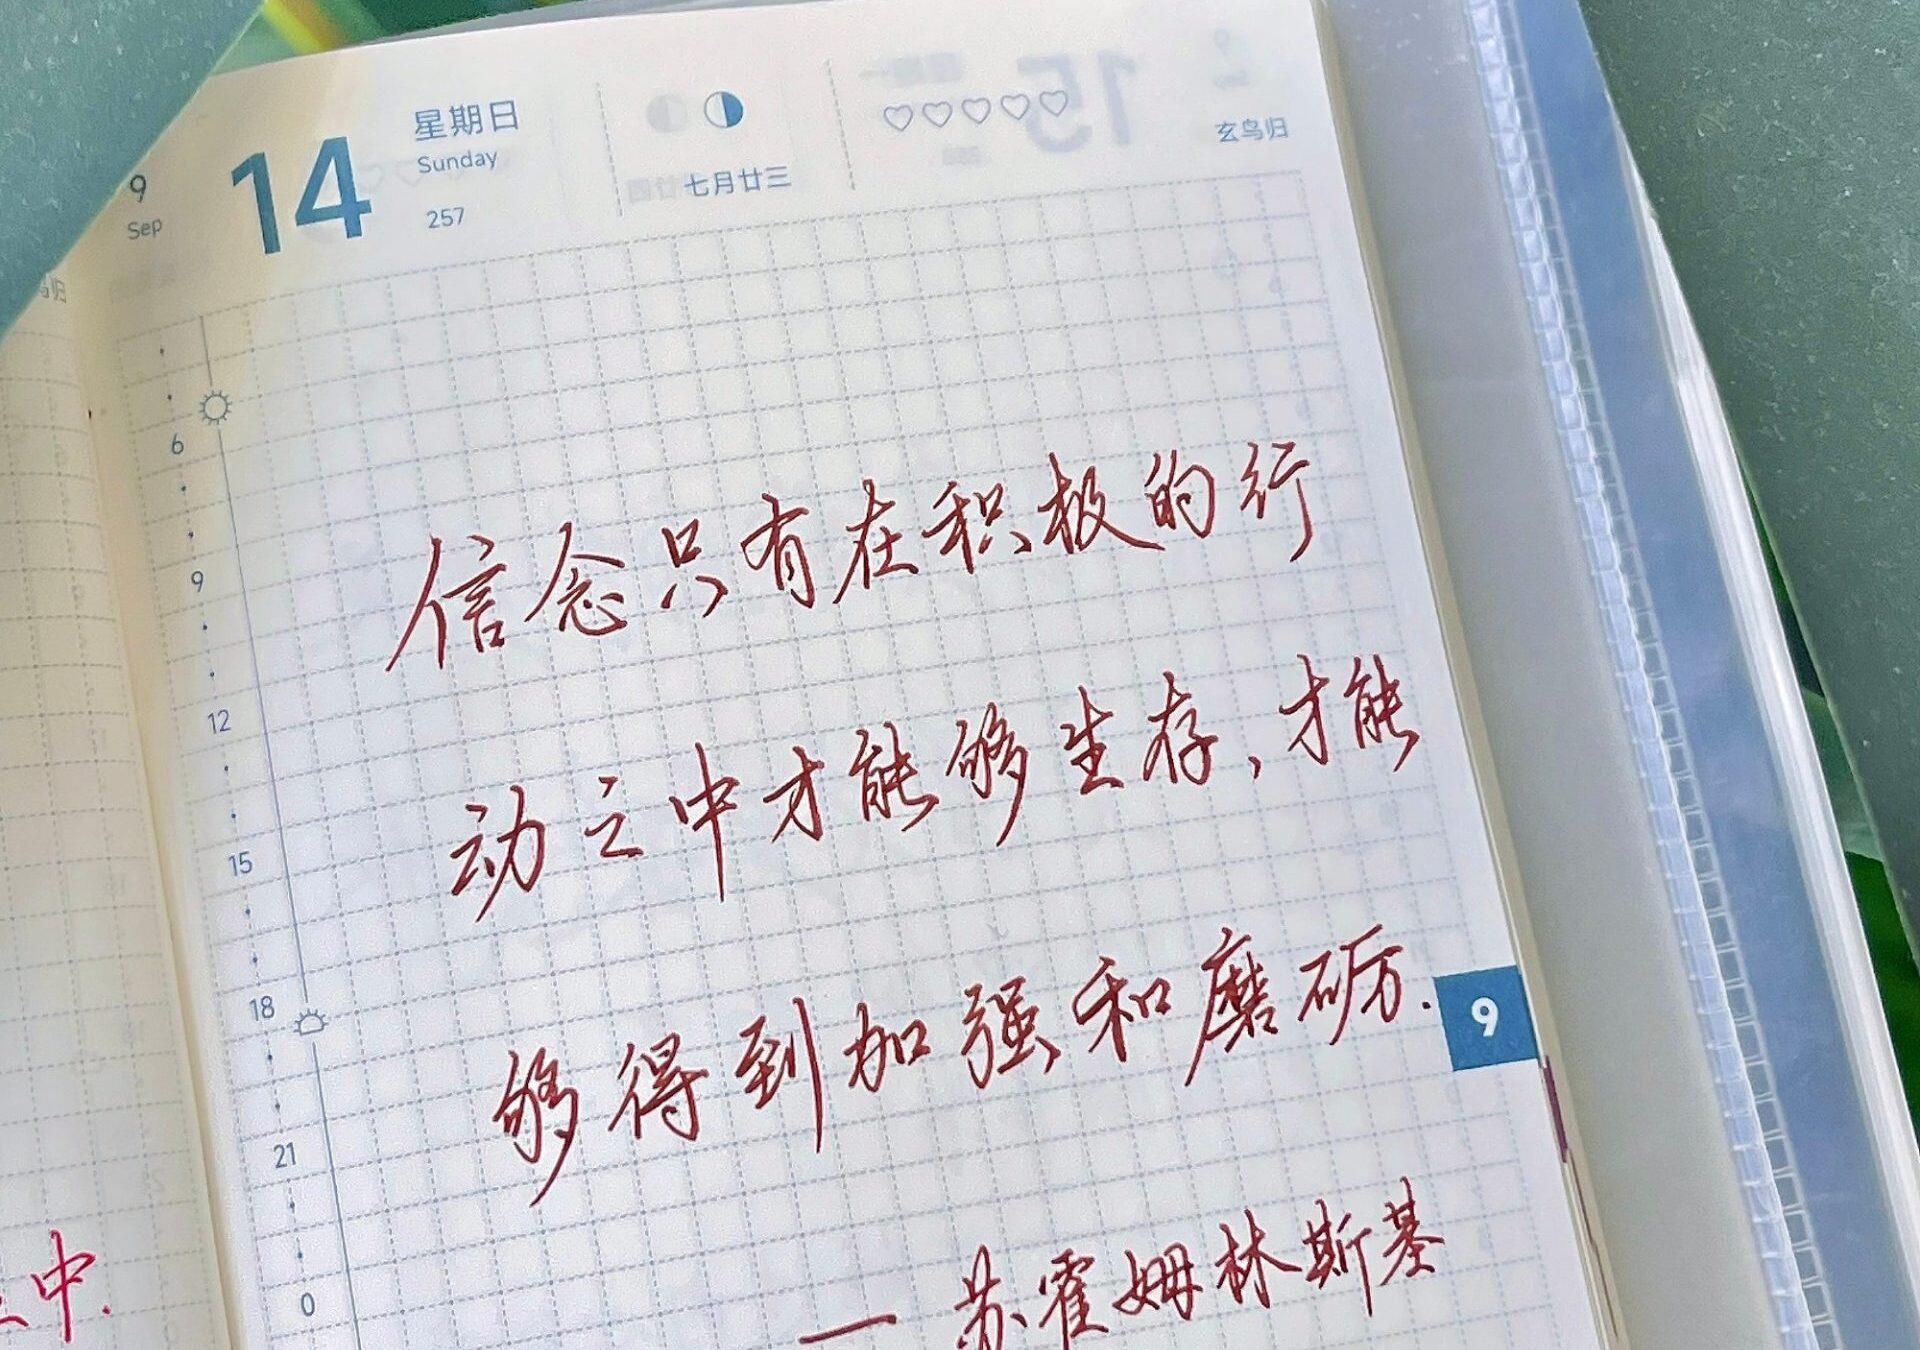 9
Sep
14
星期日
Sunday
257
七月廿三
玄鸟归
鸟归
6
9
12
15
18
21
0
信念只有在积极的行
动之中才能够生存,才能
够得到加强和磨砺.
— 苏霍姆林斯基
9
中.